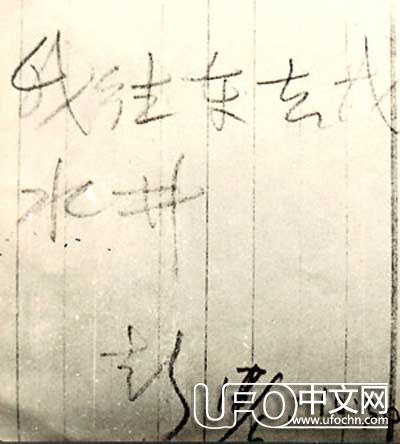 我往东去找
水井
彭
UFO中文网
www.ufochn.com